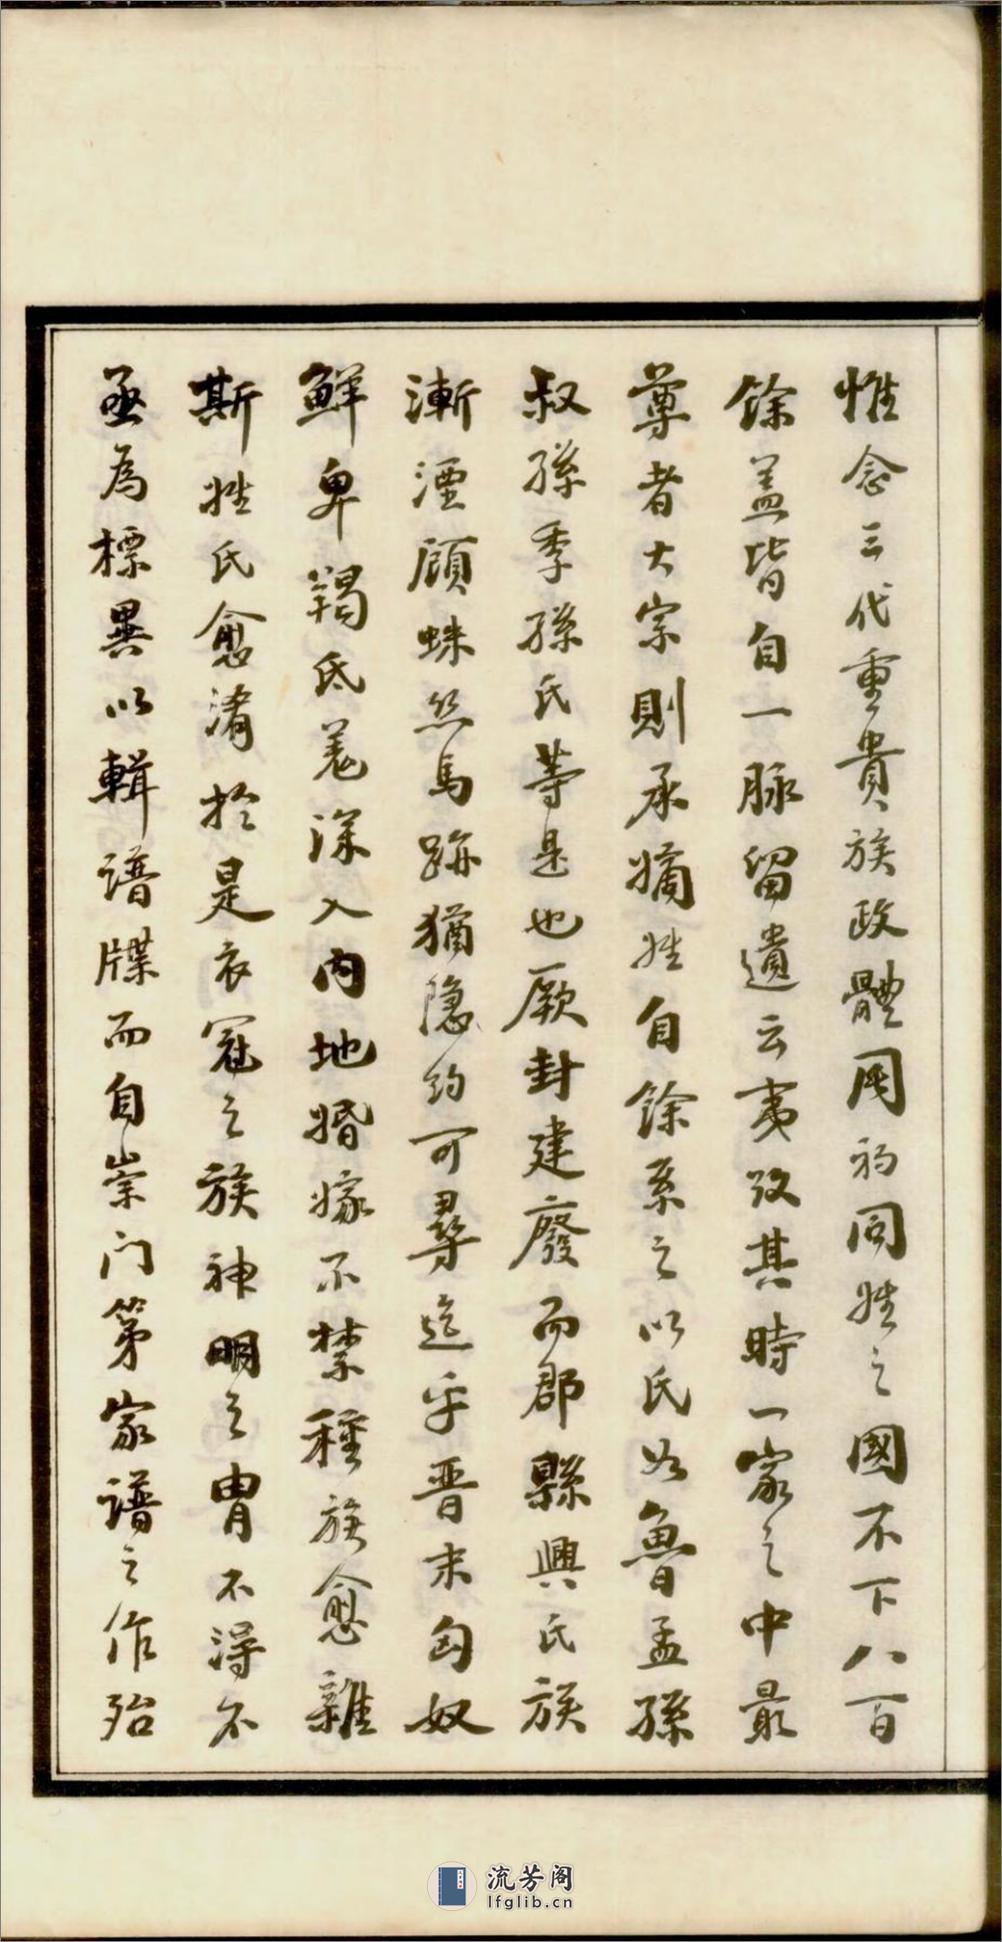 惟念三代重貴族政體周初同姓之國不下八百
餘蓋皆自一脉留遺云夷攷其時一家之中最
尊者大宗則承嫡姓自餘系之以氏如魯孟孫
叔孫季孫氏等是也厥封建廢而郡縣興氏族
漸湮顧蛛絲馬跡猶隐約可尋迄乎晋末匈奴
鮮卑羯氐羌深入內地婚嫁不禁種族愈雜
斯姓氏愈淆於是衣冠之族神明之胄不得不
亟為標異以輯譜牒而自崇门第家譜之作殆
流芳阁
lfglib.cn